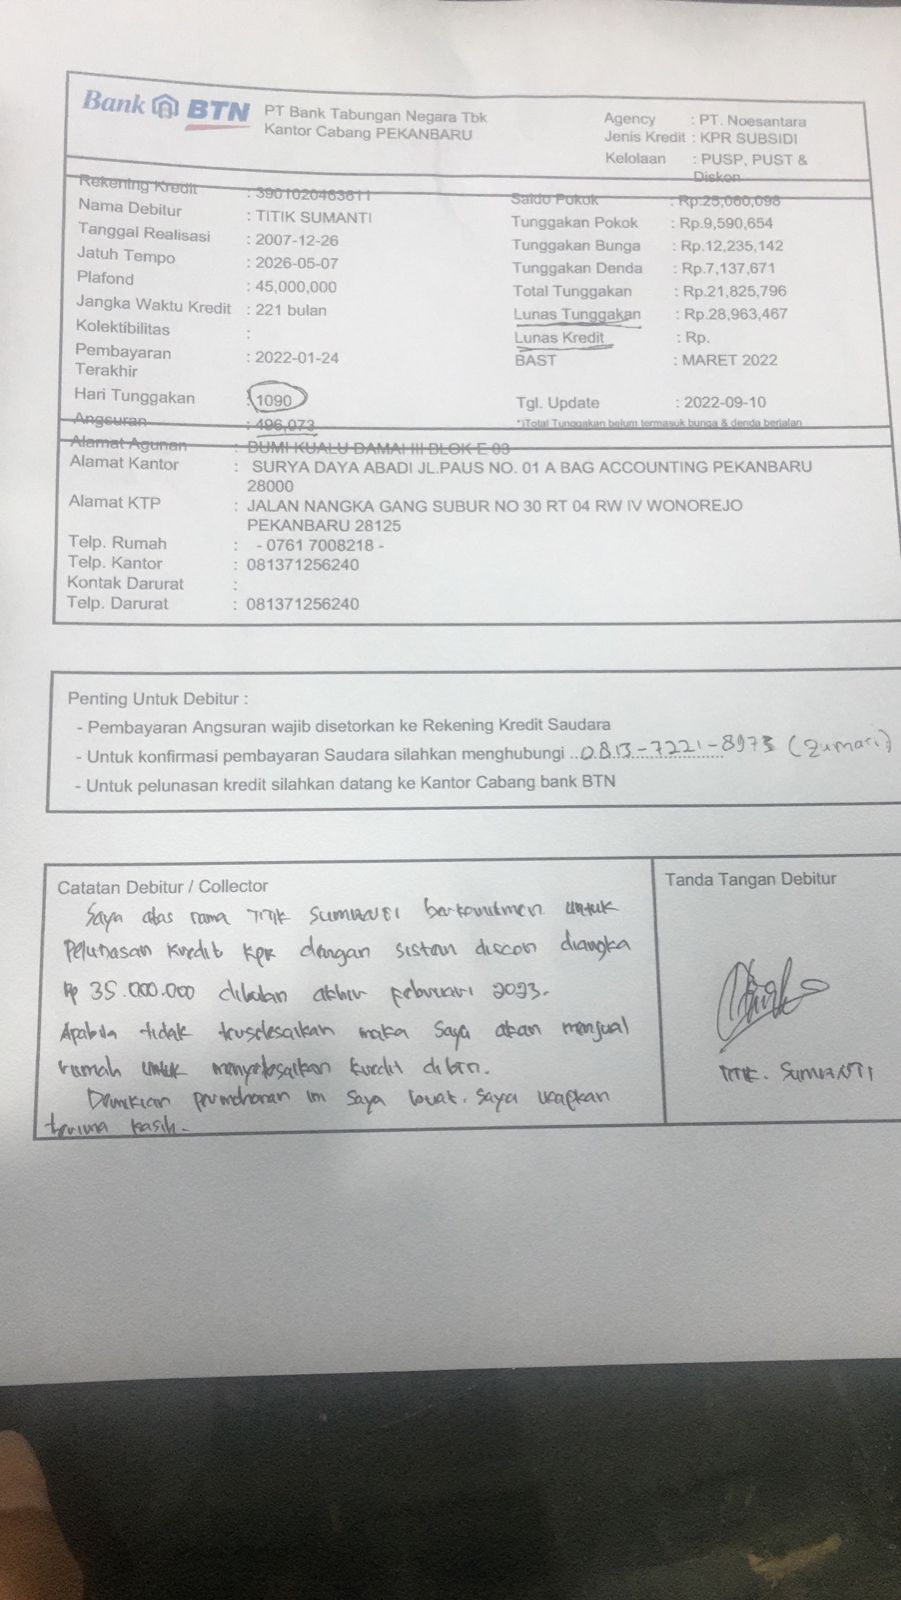 Bank BTN
PT Bank Tabungan Negara Tbk
Kantor Cabang PEKANBARU
Agency : PT. Noesantara
Jenis Kredit : KPR SUBSIDI
Kelolaan : PUSP, PUST &
Diskon
Rekening Kredit : 3901020463611
Nama Debitur : TITIK SUMANTI
Tanggal Realisasi : 2007-12-26
Jatuh Tempo : 2026-05-07
Plafond : 45,000,000
Jangka Waktu Kredit : 221 bulan
Kolektibilitas :
Pembayaran
Terakhir : 2022-01-24
Hari Tunggakan : 1090
Angsuran : 496,073
Saldo Pokok : Rp.25,060,098
Tunggakan Pokok : Rp.9,590,654
Tunggakan Bunga : Rp.12,235,142
Tunggakan Denda : Rp.7,137,671
Total Tunggakan : Rp.21,825,796
Lunas Tunggakan : Rp.28,963,467
Lunas Kredit : Rp.
BAST : MARET 2022
Tgl. Update : 2022-09-10
*)Total Tunggakan belum termasuk bunga & denda berjalan
Alamat Agunan : BUMI KUALU DAMAI III BLOK E 03
Alamat Kantor : SURYA DAYA ABADI JL.PAUS NO. 01 A BAG ACCOUNTING PEKANBARU
28000
Alamat KTP : JALAN NANGKA GANG SUBUR NO 30 RT 04 RW IV WONOREJO
PEKANBARU 28125
Telp. Rumah : - 0761 7008218 -
Telp. Kantor : 081371256240
Kontak Darurat :
Telp. Darurat : 081371256240
Penting Untuk Debitur :
- Pembayaran Angsuran wajib disetorkan ke Rekening Kredit Saudara
- Untuk konfirmasi pembayaran Saudara silahkan menghubungi ..0813-7221-8973 (Zumari)
- Untuk pelunasan kredit silahkan datang ke Kantor Cabang bank BTN
Catatan Debitur / Collector
Saya atas nama TITIK SUMIANTI berkomitmen untuk
Pelunasan kredit KPR dengan sistem discon diangka
Rp 35.000.000 dibulan akhir Februari 2023.
Apabila tidak terselesaikan maka saya akan menjual
rumah untuk menyelesaikan kredit dibtn.
Demikian permohonan ini saya buat. saya ucapkan
terima kasih.
Tanda Tangan Debitur
TITIK. SUMIANTI